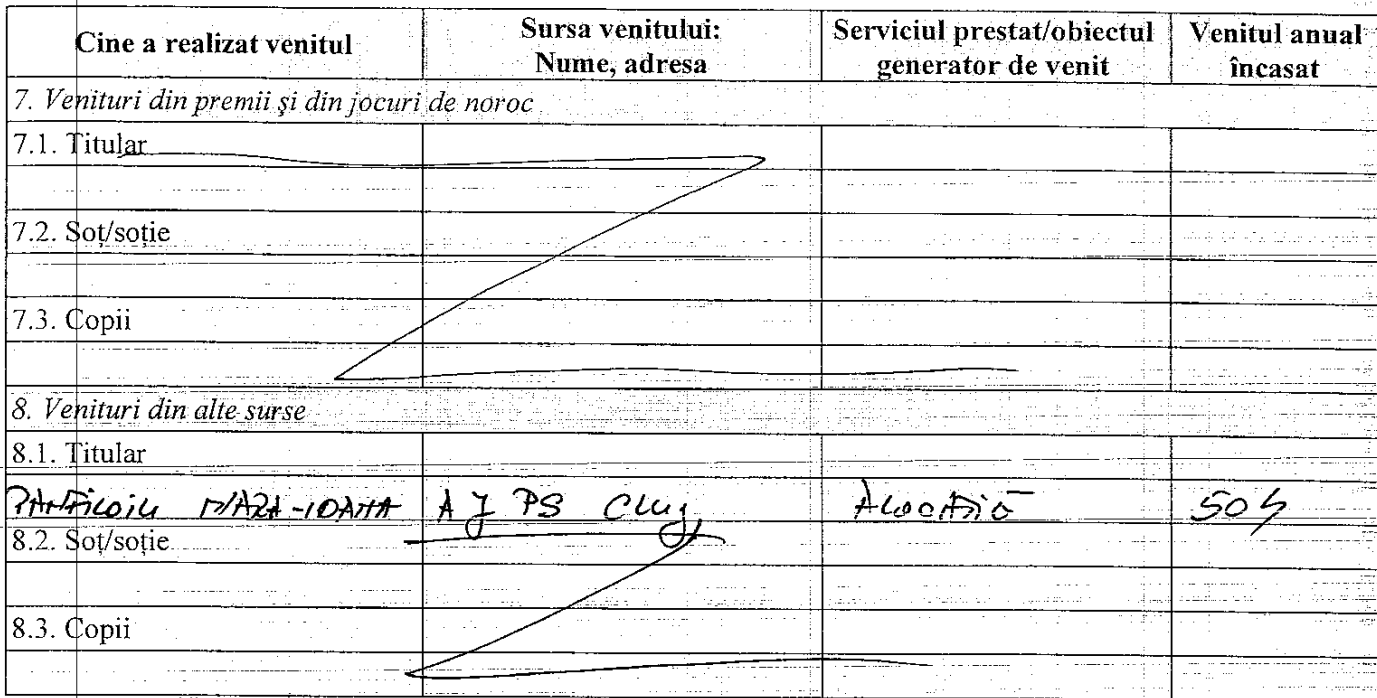 Cine a realizat venitul
Sursa venitului:
Nume, adresa
Serviciul prestat/obiectul
generator de venit
Venitul anual
încasat
7. Venituri din premii şi din jocuri de noroc
7.1. Titular
7.2. Soţ/soţie
7.3. Copii
8. Venituri din alte surse
8.1. Titular
AJPS Cluj
504
8.2. Soţ/soţie
8.3. Copii